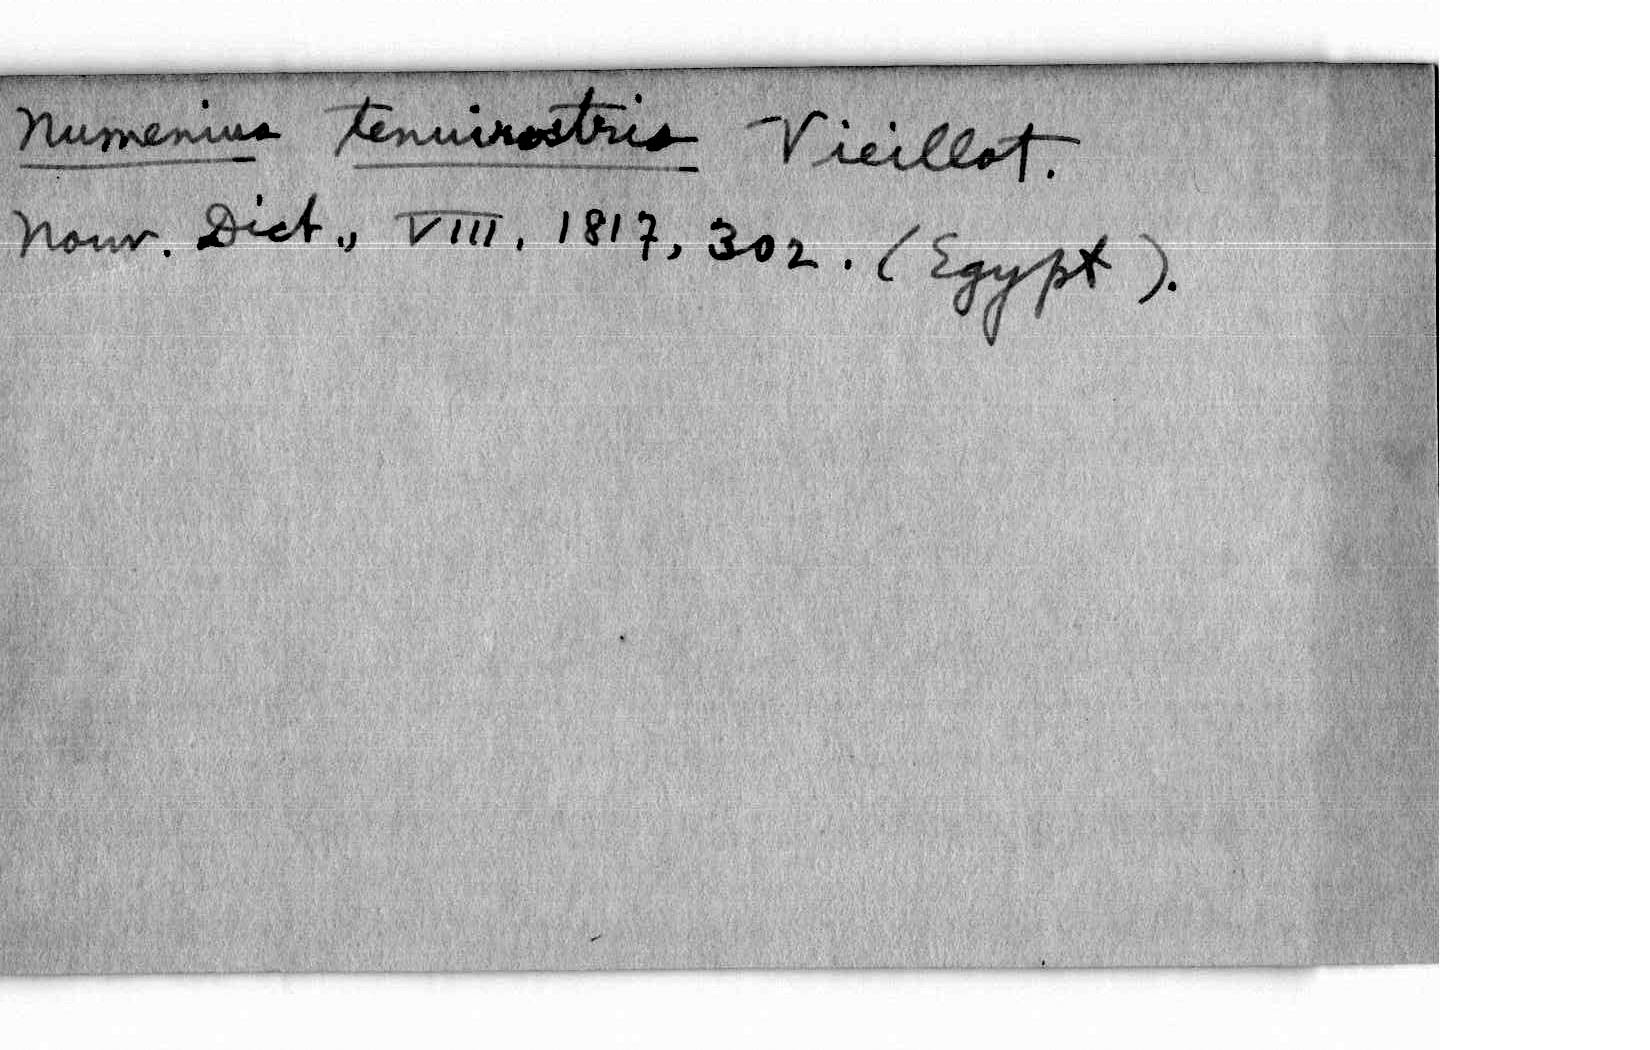 Numenius tenuirostris Vieillot.
Nouv. Dict., VIII, 1817, 302. (Egypt).